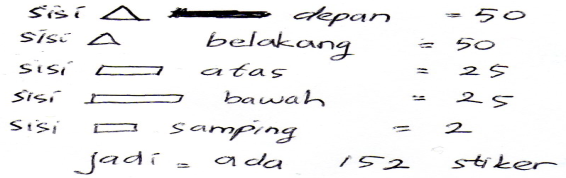 sisi △ depan = 50
sisi △ belakang = 50
sisi ▭ atas = 25
sisi ▭ bawah = 25
sisi ▭ samping = 2
jadi = ada 152 stiker